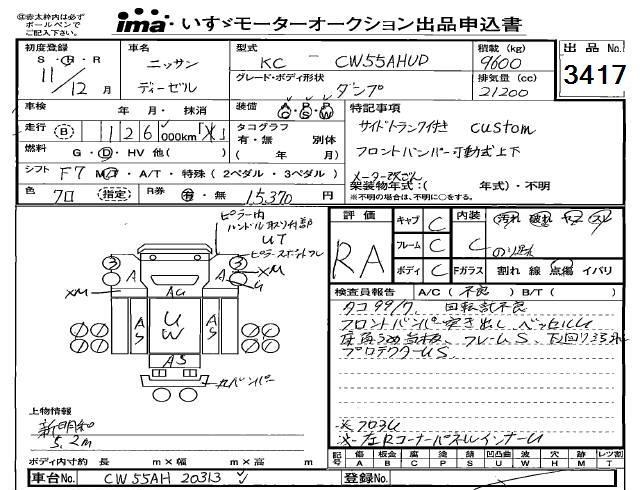 ◎赤太枠内は必ず
ボールペンで
ご記入下さい。
ima いすゞモーターオークション出品申込書
初度登録 車名 型式 積載 (kg) 出品 No.
S・H・R ニッサン KC - CW55AHUD 9600
11/12月 ディーゼル グレード・ボディ形状 排気量 (cc) 3417
ダンプ 21200
車検 年 月・抹消 装備 AC PS PW 特記事項
走行 (B) 126,000km タコグラフ サイドトランク付き custom
有・無 別体 フロントバンパー可動式上下
燃料 G・D・HV 他( ) ( 年 月)
シフト F7 MT・A/T・特殊(2ペダル・3ペダル) メーター改ざん
架装物年式:( 年式)・不明
色 クロ (指定) R券 有・無 15,370 円 ※不明の場合は、不明に○をする。
ピラー内
ハンドル取り付部
UT
ピラースポットフレ
評価 キャブ C 内装 汚れ 破れ ヤニ スレ
RA フレーム C C のり跡
ボディ C Fガラス 割れ 線 点傷 イバリ
検査員報告 A/C(不良) B/T( )
タコ99/7、回転計不良
フロントバンパー突き出し、ベッセルU
フレームS、下回り
プロテクターUS、
3 3
A A
XM
XM
U
AU
A S U W A S
AS
カバンパー
上物情報
新明和
5.2m
※フロ3U
※左RコーナーパネルインナーU
ボディ内寸約 長 m×幅 m×高 m
記号 傷 A 板金 B 腐 C 塗 P 錆 S 凹凸曲 U 波 W 穴 H 欠 M レツ割 T
車台No. CW55AH 20313 登録No.